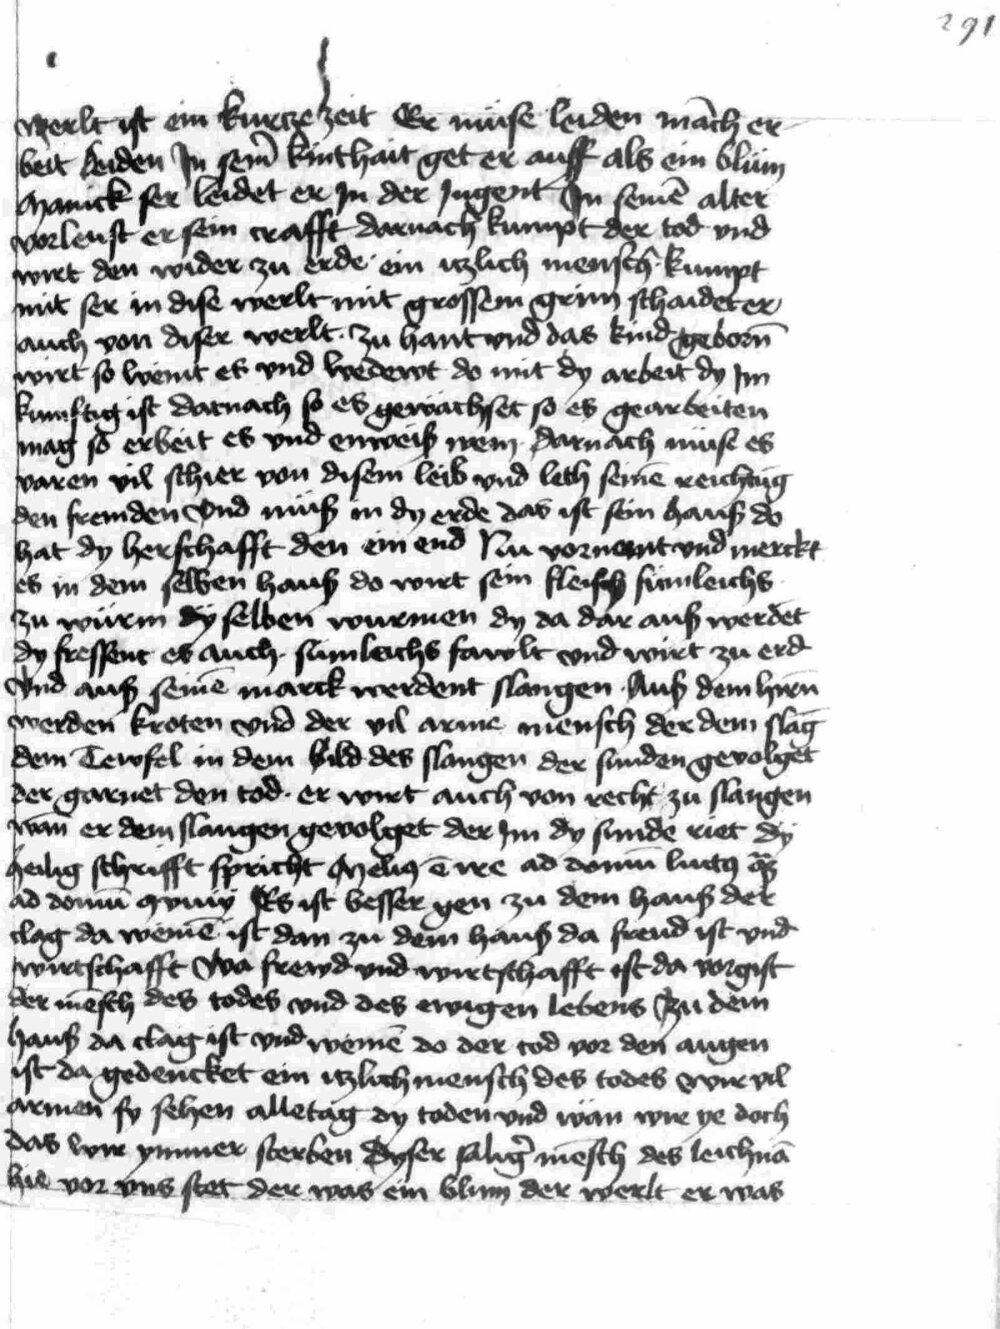 291
werlt ist ein kurcze zeit Er müse leiden mãch er
beit leiden In sem̃ kinthait get er auff als ein blüm
Manick ser leidet er In der Jugent In semẽ alter
vorleust er sein crafft darnach kumpt der tod vnd
wirt den wider zu erde · ein itzlich mensch kumpt
mit ser in dise werlt mit grossem grim schaidet er
auch von diser werlt · zu hant vnd das kind geborñ
wirt so weint es vnd bedewt do mit dy arbeit dy Im
kunftig ist darnach so es gewachset so es gearbeiten
mag so erbeit es vnd enweiß wem · darnach müse es
varen vil schier von disem leib vnd leth semẽ reichtüg
den fremden Vnd müß in dy erde das ist sein hauß do
hat dy herschafft den ein end Nu vornemt vnd merckt
es in dem selben hauß do wirt sein fleisch sümleichs
zu würm dy selben wurmen dy da dar auß werdet
dy fressent es auch · sümleichs fawlt vnd wirt zu erd
Vnd auß semẽ marck werdent slangen · Auß dem hirñ
werden kroten vnd der vil arme mensch der dem slãg
dem Tewfel in dem bild des slangen der sunden gevolget
der garnet den tod · er wirt auch von recht zu slangen
wan er dem slangen gevolget der Im dy sunde riet dy
heilig schrifft spricht Meliꝯ ẽ ire ad domũ luctꝯ
ad domũ Es ist besser gen zu dem hauß der
clag da weinẽ ist dan zu dem hauß da freud ist vnd
wirtschafft Wa frewd vnd wirtschafft ist da vorgist
der mẽsch des todes vnd des ewigen lebens Zu dem
hauß da clag ist vnd weinẽ do der tod vor den augen
ist da gedencket ein itzlich mensch des todes wir vil
armen sy sehen alletag dy toden vnd wän wir ye doch
das wir ymmer sterben Dyser salig̃ mẽsch des leichnã
hie vor vns stet der was ein blum der werlt er was